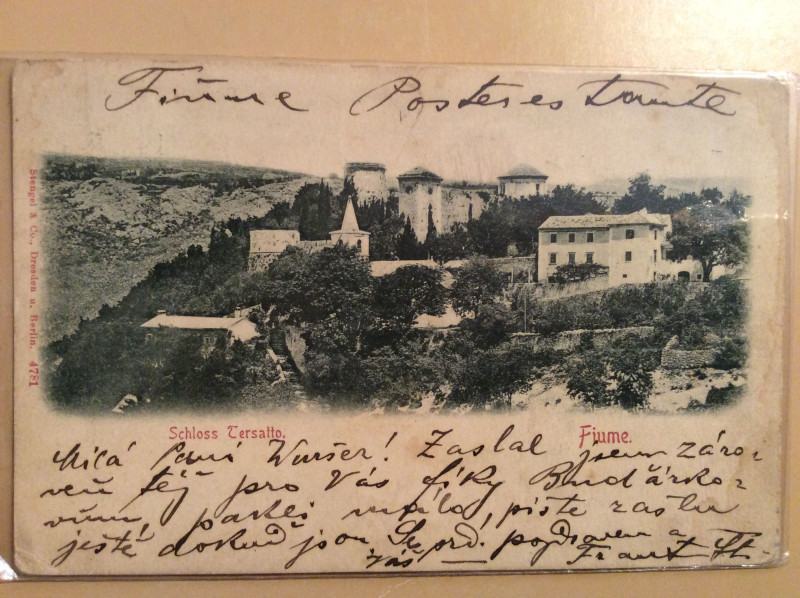 Fiume Posterestante
Stengel & Co., Dresden u. Berlin. 4781
Schloss Tersatto.
Fiume.
Milá Paní Wuršer! Zaslal jsem záro-
veň též pro Vás fíky Budčárko-
vům, málo, pište zašlu
ještě dokuď jsou Srd. pozdraven a
Váš Frant. St.